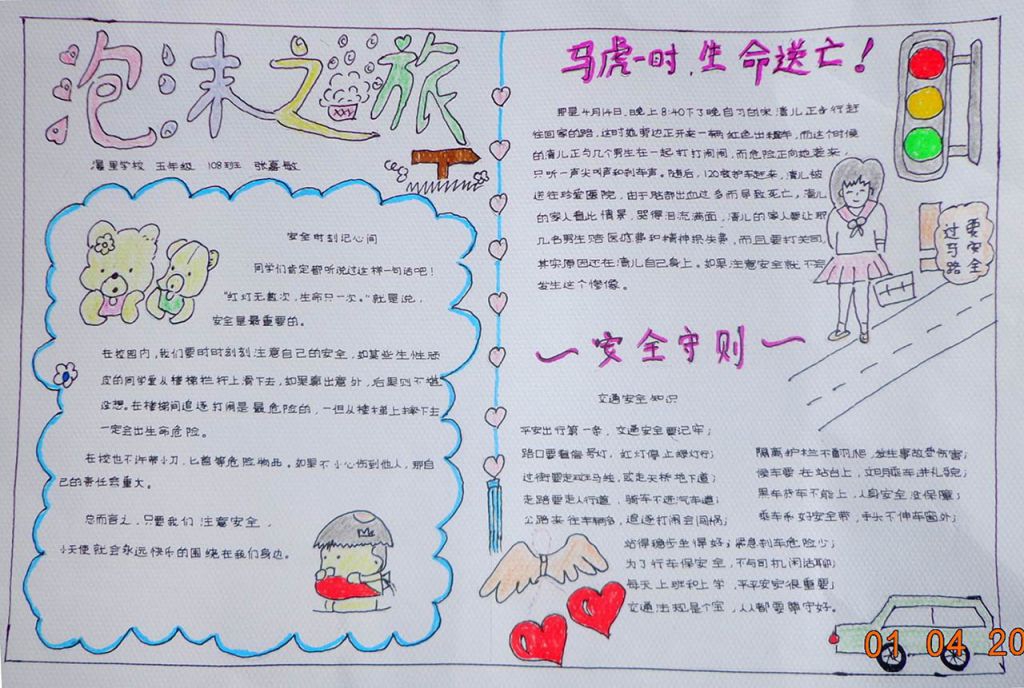 泡沫之旅
潘里学校 五年级 108班 张嘉敏
安全时刻记心间
同学们肯定都听说过这样一句话吧！
"红灯无数次，生命只一次。"就是说，
安全是最重要的。
在校园内，我们要时时刻刻注意自己的安全，如某些生性顽
皮的同学爱从楼梯栏杆上滑下去，如果露出意外，后果则不堪
设想。在楼梯间追逐打闹是最危险的，一但从楼梯上摔下去
一定会出生命危险。
在校也不许带小刀、匕首等危险物品。如果不小心伤到他人，那自
己的责任会重大。
总而言之，只要我们注意安全，
小天使就会永远快乐的围绕在我们身边。
马虎一时，生命送亡！
那是4月14日，晚上8:40下了晚自习的宋清儿正步行赶
往回家的路，这时她旁边正开来一辆红色出租车，而这个时候
的清儿正与几个男生在一起打打闹闹，而危险正向她袭来，
只听一声尖叫声和刹车声。随后，120救护车赶来，清儿被
送往珍爱医院，由于脑部出血过多而导致死亡，清儿
的家人看此情景，哭得泪流满面，清儿的家人要让那
几名男生赔医疗费和精神损失费，而且要打关司，
其实原因还在清儿自己身上。如果注意安全就不会
发生这个惨像。
要安全
过马路
安全守则
交通安全知识
平安出行第一条，交通安全要记牢；
路口要看信号灯，红灯停止绿灯行；
过街要走斑马线，或走天桥地下道；
走路要走人行道，骑车不进汽车道；
公路来往车辆多，追逐打闹会闯祸；
站得稳步坐得好；紧急刹车危险少；
为了行车保安全，不与司机闲话聊；
每天上班和上学，平平安安很重要；
交通法规是个宝，人人都要遵守好。
隔离护栏不翻爬，发生事故受伤害；
候车要在站台上，文明乘车讲礼貌；
黑车货车不能上，人身安全没保障；
乘车系好安全带，手头不伸车窗外；
01 04 20